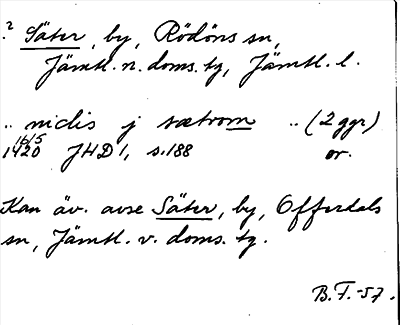 ? Säter, by, Rödöns sn,
Jämtl. n. doms. tg, Jämtl. l.
.. niclis j sætrom .. (2 ggr)
16/5
1420 JHD 1, s. 188 or.
Kan äv. avse Säter, by, Offerdals
sn, Jämtl. v. doms. tg.
B.F. -57.